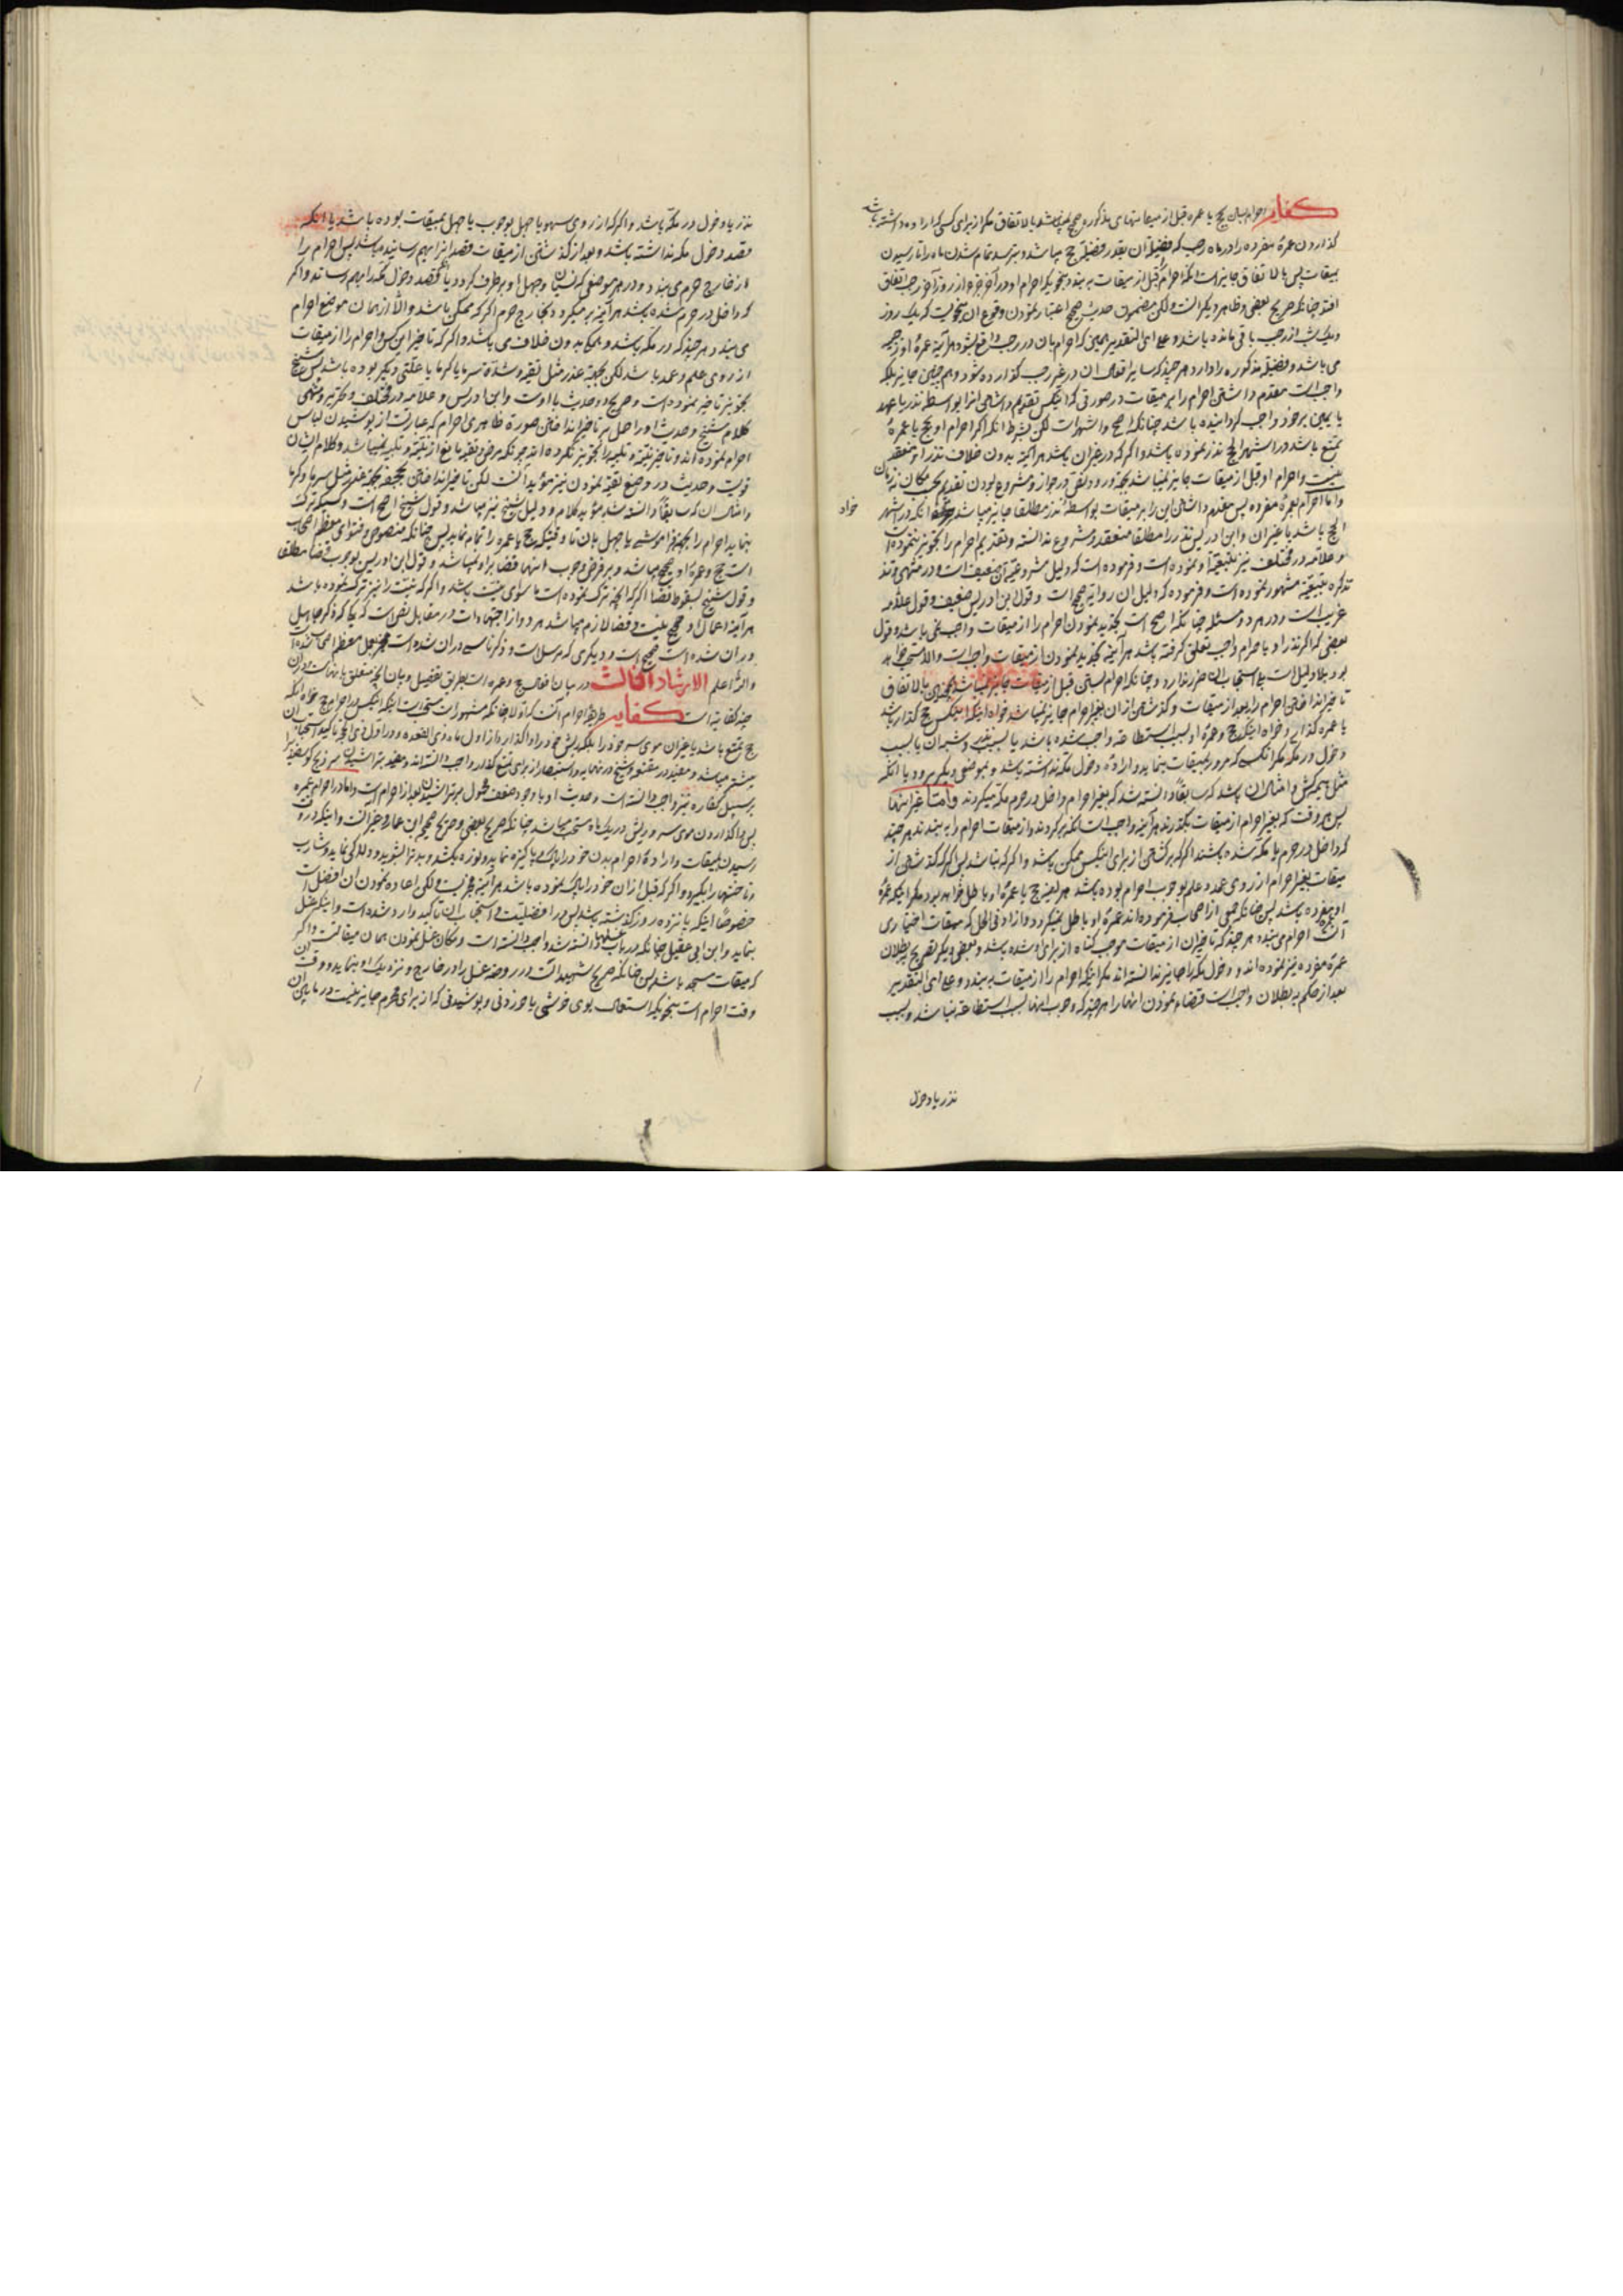 کفایه احرام بستن بحج یا عمره قبل از میقاتهای مذکوره صحیح نمیباشد بالاتفاق مگر از برای کسی که اراده داشته باشد
گذاردن عمرهٔ مفرده را در ماه رجب که فضیلة آن بقدر فضیلة حج میباشد و بترسد تمام شدن ماه را تا رسیدن
بمیقات پس بالاتفاق جایز است آنکه احرام قبل از میقات به بندد بنحویکه احرام او در آخر جزء از روز آخر رجب اتفاق
افتد چنانکه صریح بعضی و ظاهر دیگرانست ولکن مضمون حدیث صحیح اعتبار نمودن وقوع آن بنحویست که یک روز
و یک شب از رجب باقی مانده باشد و علی ای التقدیر بهمین که احرام بآن در رجب واقع بشود هر آینه عمرهٔ او رجبیه
می باشد و فضیلة مذکوره را دارد هر چند که سایر افعال آن در غیر رجب گذارده شود و هم چنین جایز بلکه
واجب است مقدم داشتن احرام را بر میقات در صورتی که آنکس تقدیم داشتن آنرا بواسطه نذر یا عهد
یا یمین بر خود واجب گردانیده باشد چنانکه اصح و اشهر است لکن بشرط آنکه اگر احرام او بحج یا عمرهٔ
تمتع باشد در اشهر الحج نذر نموده باشد و اگر که در غیر آن باشد هر آینه بدون خلاف نذر او منعقد
نیست و احرام او قبل از میقات جایز نمیباشد بجهة ورود نص در جواز و مشروع بودن تقدیم بحسب مکان نه زمان
و اما احرام بعمرهٔ مفرده پس مقدم داشتن این را بر میقات بواسطهٔ نذر مطلقا جایز میباشد خواه آنکه در اشهر
خواه
الحج باشد یا غیر آن و ابن ادریس نذر را مطلقا منعقد و مشروع ندانسته و تقدیم احرام را تجویز ننموده است
و علامه در مختلف نیز تبعیت او نموده است و فرموده است که دلیل مشروعیة آن ضعیف است و در منتهی و
تذکره تبعیة مشهور نموده است و فرموده که دلیل آن روایة صحیح است و قول ابن ادریس ضعیف و قول علامه
غریب است و در هر دو مسئله چنانکه اصح است تجدید نمودن احرام را از میقات واجب نمی باشد و قول
بعضی که اگر نذر او با احرام واجب تعلق گرفته باشد هر آینه تجدید نمودن از میقات واجب است والا مستحب خواهد
بود بلا دلیل است بلی استحباب آن ضرر ندارد و چنانکه احرام بستن قبل از میقات جایز نمیباشد همچنین بالاتفاق
تاخیر انداختن احرام را بعد از میقات و گذشتن از آن بغیر احرام جایز نمیباشد خواه اینکه آنکس حج گذار باشد
یا عمره گذار و خواه اینکه حج و عمرهٔ او بسبب استطاعة واجب شده باشد یا بسبب نذر و شبه آن یا بسبب
دخول در مکه مگر آنکسی که مرور بمیقات بنماید و ارادهٔ دخول مکه نداشته باشد و بموضعی دیگر برود یا آنکه
مثل هیمه کش و امثال آن باشد که سابقا دانسته شد که بغیر احرام داخل در حرم مکه میگردند و اما غیر اینها
پس هر وقت که بغیر احرام از میقات بگذرند هر آینه واجب است آنکه برگردند و از میقات احرام را به بندند هر چند
که داخل در حرم یا مکه شده باشند اگر که برگشتن از برای آنکس ممکن باشد و اگر که نباشد پس اگر که گذشتن از
میقات بغیر احرام از روی عمد و علم بوجوب احرام بوده باشد هر آینه حج یا عمرهٔ او باطل خواهد بود مگر اینکه عمرهٔ
او مفرده باشد پس چنانکه جمعی از اصحاب فرموده اند عمرهٔ او باطل نمیگردد و از ادنی الحل که میقات اختیاری
آنست احرام می بندد هر چند که تاخیر آن از میقات موجب گناه از برای او شده باشد و بعضی دیگر تصریح ببطلان
عمرهٔ مفرده نیز نموده اند و دخول مکه را جایز ندانسته اند مگر اینکه احرام را از میقات به بندد و علی ای التقدیر
بعد از حکم به بطلان واجب است قضاء نمودن آنها را هر چند که وجوب آنها بسبب استطاعة نباشد و بسبب
نذر یا دخول
نذر یا دخول در مکه باشد و اگر که از روی سهو یا جهل بوجوب یا جهل بمیقات بوده باشد یا آنکه
قصد دخول مکه نداشته باشد و بعد از گذشتن از میقات قصد آنرا بهم رسانیده باشد پس احرام را
از خارج حرم می بندد و در هر موضعی که نسیان و جهل او برطرف گردد یا قصد دخول مکه را بهم رساند و اگر
که داخل در حرم شده باشد هر آینه بر میگردد بخارج حرم اگر که ممکن باشد والا از همان موضع احرام
می بندد هر چند که در مکه باشد و همگی بدون خلاف می باشد و اگر که تاخیر آنکس احرام را از میقات
از روی علم و عمد باشد لکن بجهة عذر مثل تقیه و شدة سرما یا گرما یا علتی دیگر بوده باشد پس شیخ
تجویز تاخیر نموده است و صریح دو حدیث با اوست و ابن ادریس و علامه در مختلف و تحریر و منتهی
کلام شیخ و حدیث او را حمل بر تاخیر انداختن صورة ظاهری احرام که عبارتست از پوشیدن لباس
احرام نموده اند و تاخیر نیة و تلبیه را تجویز نکرده اند چونکه مرض و تقیه مانع از نیة و تلبیه نمیباشد و کلام ایشان
قویست و حدیث در وضع تقیه نمودن نیز مؤید آنست لکن تاخیر انداختن بجحفه بجهة عذر مثل سرما و گرما
و امثال آن که سابقا دانسته شد مؤید کلام و دلیل شیخ نیز میباشد و قول شیخ اصح است و کسیکه ترک
بنماید احرام را بجهة فراموشی یا جهل بآن تا وقتیکه حج یا عمره را تمام نماید پس چنانکه منصوص و فتوای معظم اصحاب
است حج و عمرهٔ او صحیح میباشد و بر فرض وجوب آنها قضا بر او نمیباشد و قول ابن ادریس بوجوب قضا مطلقا
و قول شیخ بسقوط قضا اگر که آنچه ترک نموده است ما سوای نیت باشد و اگر که نیت را نیز ترک نموده باشد
هر آینه اعمال او صحیح نیست و قضا لازم میباشد هر دو از اجتهادات در مقابل نص است که یکی که ذکر جاهل
در آن شده است صحیح است و دیگری که مرسل است و ذکر ناسی در آن شده است منجبر بعمل معظم اصحاب شده است
والله اعلم الارشاد الثالث در بیان افعال حج و عمره است بطریق تفصیل و بیان آنچه متعلق بآنهاست و در آن
چند کفایة است کفایه طریقة احرام آنست که اولا چنانکه مشهور است مستحب است اینکه آنکس در احرام حج خواه آنکه
حج تمتع باشد یا غیر آن موی سر خود را بلکه ریش خود را واگذارد از اول ماه ذی القعده و در اول ذی الحجه تاکید استحباب آن
بیشتر میباشد و مفید در مقنعه و شیخ در نهایه و استبصار از برای تمتع گذار واجب دانسته اند و مفید بتراشیدن سر ذبح گوسفند را
بر سبیل کفاره نیز واجب دانسته است و حدیث او با وجود ضعف محمول بر تراشیدن بعد از احرام است و اما در احرام عمره
پس واگذاردن موی سر و ریش در یک ماه مستحب میباشد چنانکه صریح بعضی و صریح صحیح ابن عمار و خبر آنست و اینکه در وقت
رسیدن بمیقات و ارادهٔ احرام بدن خود را پاک و پاکیزه نماید و نوره بکشد و بدن را بشوید و دلاکی نماید و شارب
و ناخنها را بگیرد و اگر که قبل از آن خود را پاک نموده باشد هر آینه مجزیست ولکن اعاده نمودن آن افضلست
خصوصا اینکه پانزده روز گذشته باشد پس در افضلیت و استحباب آن تاکید وارد شده است و اینکه غسل
بنماید و ابن ابی عقیل چنانکه در باب غسلها دانسته شد واجب دانسته است و مکان غسل نمودن همان میقاتست و اگر
که میقات مسجد باشد پس چنانکه صریح شهید است در روضه غسل را در خارج و نزدیک او بنماید و وقت آن
وقت احرام است بنحویکه استعمال بوی خوشی یا خوردنی و پوشیدنی که از برای محرم جایز نیست در مابین آن